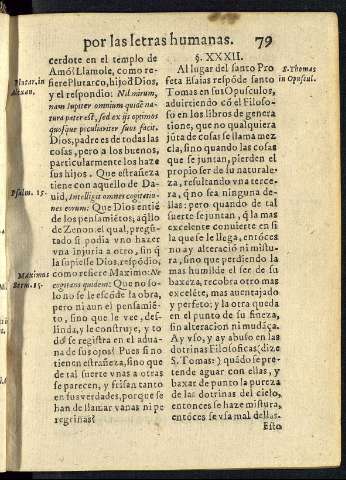 por las letras humanas. 79
cerdote en el templo de
Amō! Llamole, como re-
fiere Plutarco, hijo d Dios,
y el respondio: Nil mirum,
nam Iupiter omnium quidē na-
tura pater est, sed ex ijs optimos
quosque peculiariter suos facit.
Dios, padre es de todas las
cosas, pero a los buenos,
particularmente los haze
sus hijos. Que estrañeza
tiene con aquello de Da-
uid, Intelligit omnes cogitatio-
nes eorum: Que Dios entiē
de los pensamiētos; aq̄llo
de Zenon: el qual, pregū-
tado si podia vno hazer
vna injuria a otro, sin q̄
la supiesse Dios, respōdio,
como refiere Maximo: Ne
cogitans quidem: Que no so-
lo no se le escōde la obra,
pero ni aun el pensamiē-
to, sino que le vee, des-
linda, y le construye, y to
do se registra en el adua-
na de sus ojos? Pues si no
tienen estrañeza, sino que
de tal suerte vnas a otras
se parecen, y frisan tanto
en sus verdades, porque se
han de llamar vanas ni pe
regrinas?
Plutar. in
Alexan.
Psalm. 15.
Maximus
Serm. 15.
§. XXXII.
Al lugar del santo Pro
feta Esaias respōde santo
Tomas en sus Opusculos,
aduirtiendo cō el Filoso-
fo en los libros de genera
tione, que no qualquiera
jūta de cosas se llama mez
cla, sino quando las cosas
que se juntan, pierden el
propio ser de su naturale-
za, resultando vna terce-
ra, q̄ no sea ninguna de-
llas: pero quando de tal
suerte se juntan, q̄ la mas
excelente conuierte en si
la que se le llega, entōces
no ay alteracion ni mistu-
ra, sino que perdiendo la
mas humilde el ser de su
baxeza, recobra otro mas
excelēte, mas auentajado
y perfeto; y la otra queda
en el punto de su fineza,
sin alteracion ni mudāça.
Ay vso, y ay abuso en las
dotrinas Filosoficas (dize
S. Tomas:) quādo se pre-
tende aguar con ellas, y
baxar de punto la pureza
de las dotrinas del cielo,
entonces se haze mistura,
entōces se vsa mal dellas.
Esto
S. Thomas
in Opuscul.